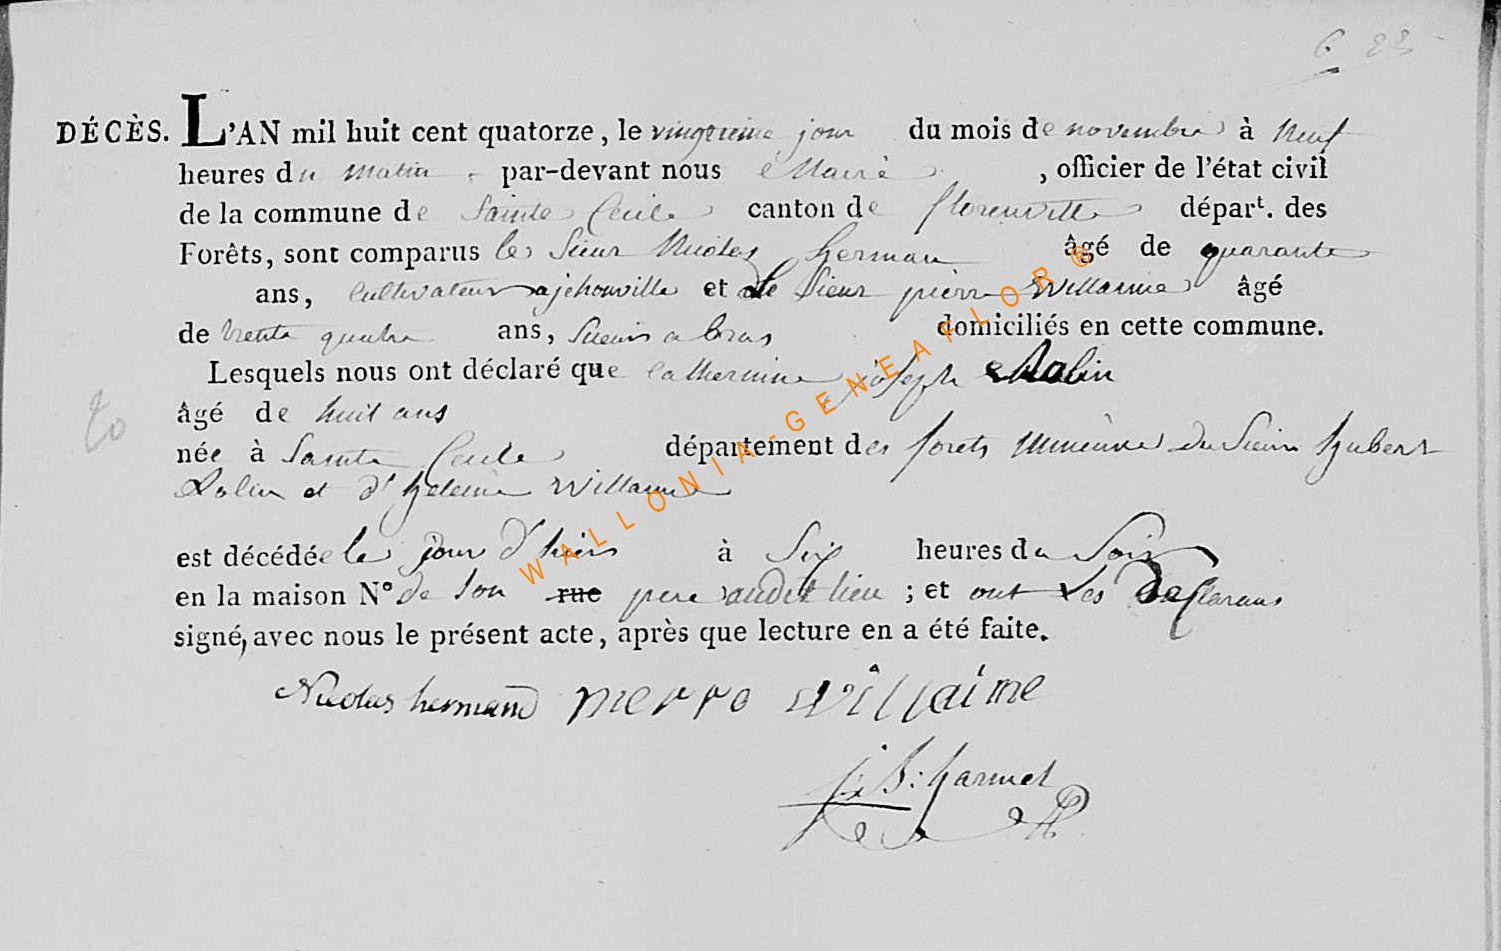 DÉCÈS. L'AN mil huit cent quatorze, le vingtieme jour du mois de novembre à neuf
heures du matin par-devant nous Maire , officier de l'état civil
de la commune de Sainte Cecile canton de florenville départ. des
Forêts, sont comparus le Sieur Nicolas herman âgé de quarante
ans, Cultivateur a jehonville et le Sieur pierre Willaime âgé
de trente quatre ans, domiciliés en cette commune.
Lesquels nous ont déclaré que Catherinne joseph Rolin
âgé de huit ans
née à Sainte Cecile département des forets mineure du Sieur hubert
Rolin et d' heleine Willaime
est décédée le jour d'hiers à Six heures du Soir
en la maison N° de son rue pere audit lieu ; et ont Les Declarans
signé, avec nous le présent acte, après que lecture en a été faite.
Nicolas hermand pierre Willaime
j: B: harmel
WALLONIA-GENEAFLOR®